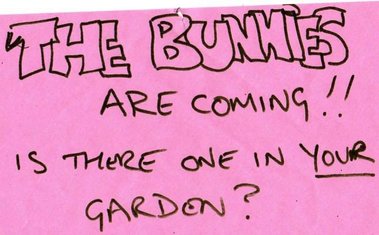 THE BUNNIES
ARE COMING!!
IS THERE ONE IN YOUR
GARDEN?